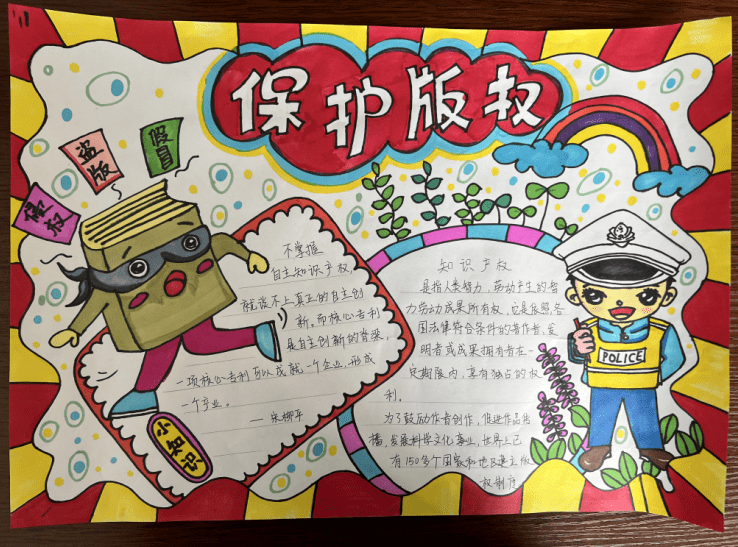 保护版权
侵权
盗版
假冒
不掌握
自主知识产权,
就谈不上真正的自主创
新。而核心专利
是自主创新的背梁,
一项核心专利可以成就一个企业,形成
一个产业。
——宋柳平
小知识
知识产权
是指人类智力劳动产生的智
力劳动成果所有权,它是依照各
国法律符合条件的著作者、发
明者或成果拥有者在一
定期限内,享有独占的权
利。
为了鼓励作者创作,促进作品传
播,发展科学文化事业,世界上已
有150多个国家和地区建立版
权制度
POLICE